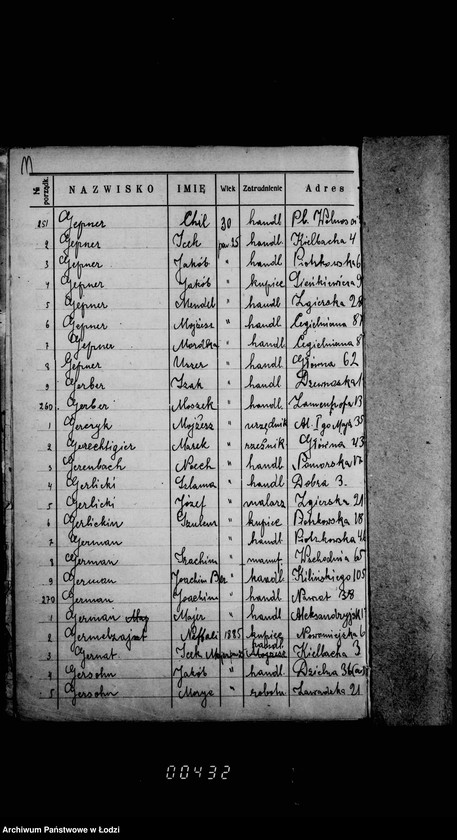 M
№ porządk. NAZWISKO IMIĘ Wiek Zatrudnienie Adres
251 Gepner Chil 30 handl Pl. Wolnosci
2 Gepner Icek pow 25 handl Kielbacha 4
3 Gepner Jakób " handl Piotrkowska 6
4 Gepner Jakób " kupiec Sienkiewicza 9
5 Gepner Mendel " handl Zgierska 28
6 Gepner Mojżesz " handl Cegielniana 87
7 Gepner Mordka " handl Cegielniana 8
8 Gepner Uszer " handl Główna 62
9 Gerber Izak " handl Drewnoska 1
260 Gerber Moszek " handl Zamenhofa 13
1 Gereryk Mojżesz " urzędnik Al. I go Maja 35
2 Gerechtigier Marek " rzeźnik Główna 43
3 Gerenbach Noech " handl Pomorska 17
4 Gerlicki Szlama " handl Dobra 3.
5 Gerlicki Józef " malarz Zgierska 21
6 Gerlickin Szulem " kupiec Piotrkowska 18
7 German " handl Piotrkowska 46
8 German Srachim " Wschodnia 65
9 German Joachim Ber " handl Kilińskiego 105
270 German Joachim " handl Nawrot 38
1 German Majer " handl Aleksandryjsk 1
2 Naftali 1885 kupiec Nowomiejska 6
3 Gernat Icek handl Kielbacha 3
4 Gersohn Jakób " handl Dzielna 36
5 Gersohn Moryc " robotn Zawadzka 21
00432
Archiwum Państwowe w Łodzi